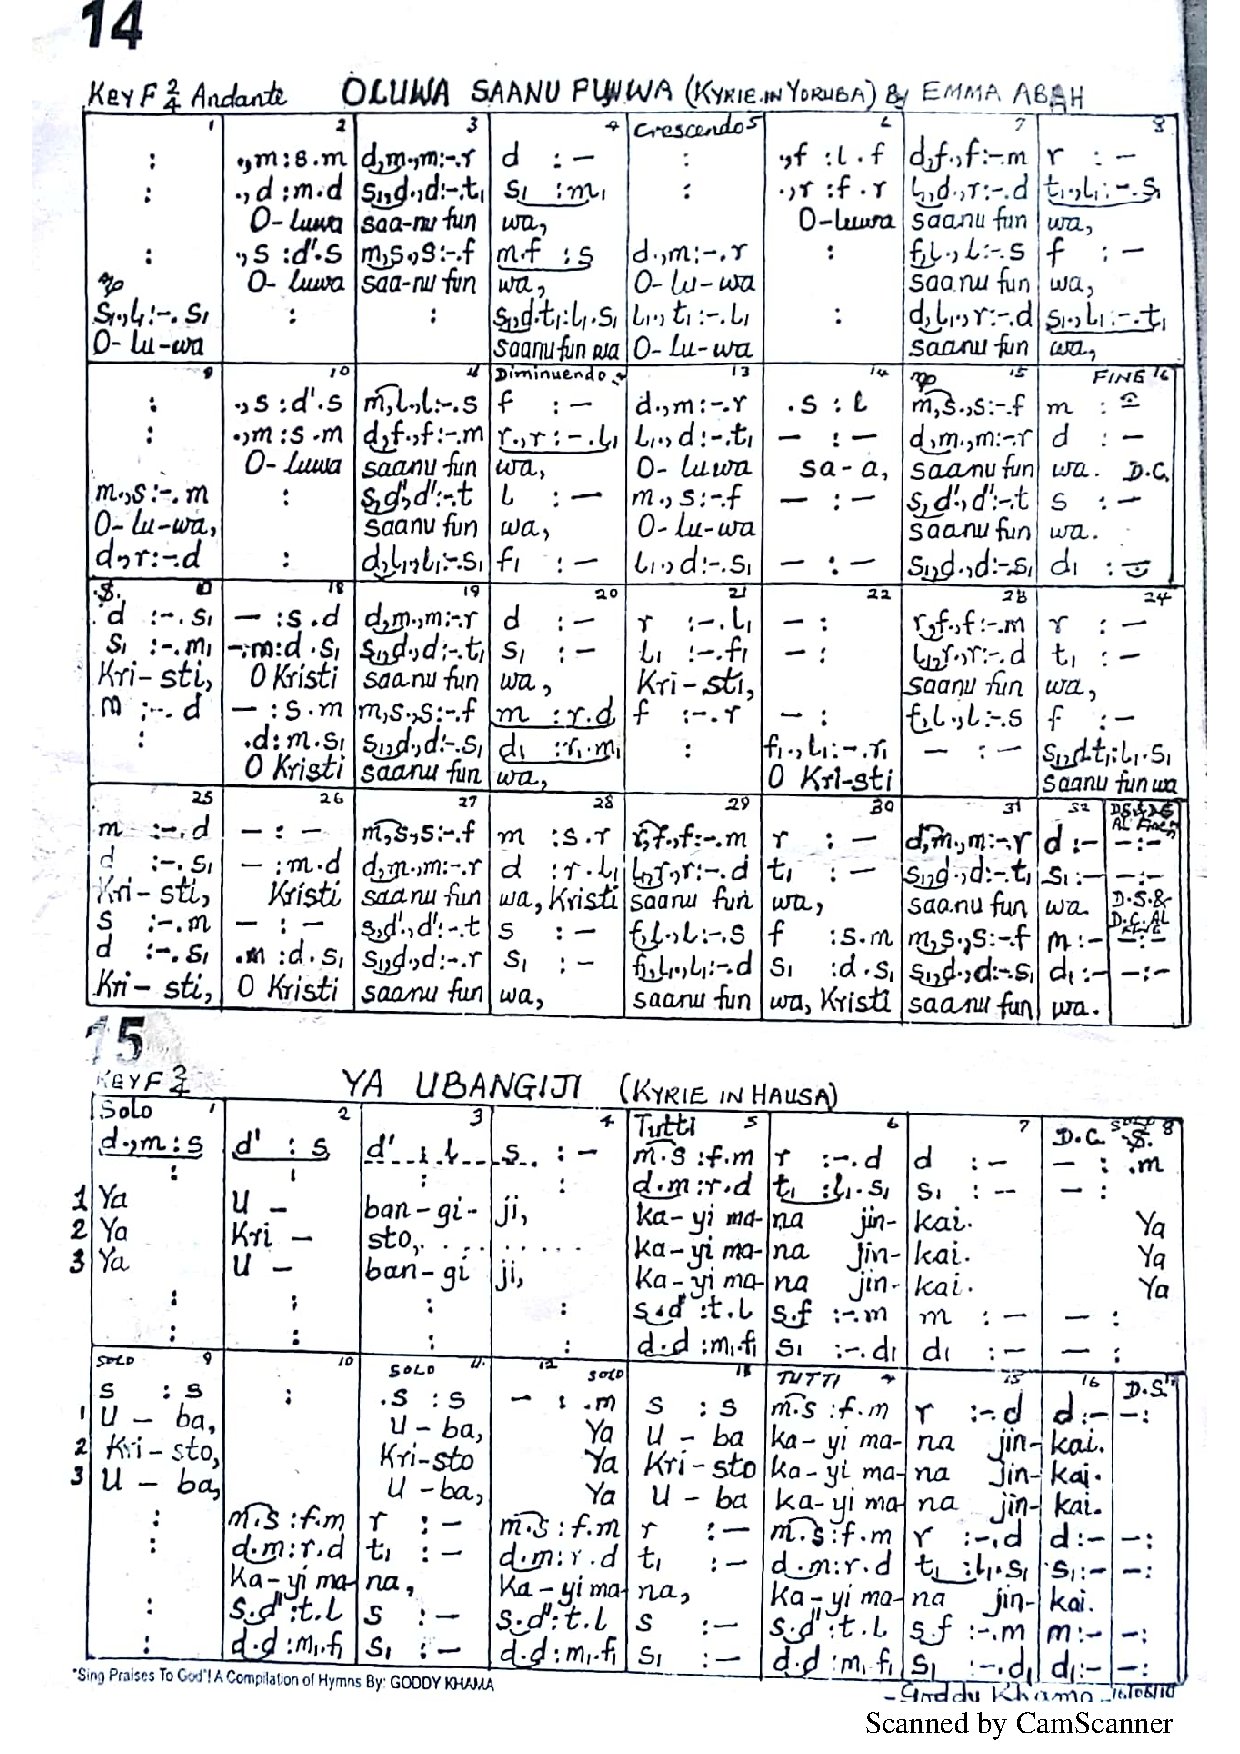 14
Key F 2/4 Andante OLUWA SAANU FUNWA (KYRIE IN YORUBA) By EMMA ABAH
1 2 3 4 Crescendo 5 6 7 8
: .,m:s.m d,m.,m:-.r d :- : .,f :l.f d,f.,f:-.m r :-
: .,d:m.d s₁,d.,d:-.t₁ s₁ :m₁ : .,r:f.r l₁,d.,r:-.d t₁.,l₁:-.s₁
O-luwa saa-nu fun wa, O-luwa saanu fun wa,
: .,s:d'.s m,s.,s:-.f m.f :s d.,m:-.r : f,l.,l:-.s f :-
mp O-luwa saa-nu fun wa, O-lu-wa saanu fun wa,
s₁.,l₁:-.s₁ : : s₁,d.t₁:l₁.s₁ l₁.,t₁:-.l₁ : d,l₁.,r:-.d s₁.,l₁:-.t₁
O-lu-wa saanu fun wa O-lu-wa saanu fun wa,
9 10 11 Diminuendo 12 13 14 mp 15 FINE 16
: .,s:d'.s m,l.,l:-.s f :- d.,m:-.r .s:l m,s.,s:-.f m :
: .,m:s.m d,f.,f:-.m r.,r:-.l₁ l₁.,d:-.t₁ -:- d,m.,m:-.r d :-
O-luwa saanu fun wa, O-luwa sa-a, saanu fun wa. D.C.
m.,s:-.m : s,d'.,d':-.t l :- m.,s:-.f -:- s,d'.,d':-.t s :-
O-lu-wa, saanu fun wa, O-lu-wa saanu fun wa.
d.,r:-.d : d,l₁.,l₁:-.s₁ f₁ :- l₁.,d:-.s₁ -:- s₁,d.,d:-.s₁ d₁ :
.S. 17 18 19 20 21 22 23 24
d :-.s₁ -:s.d d,m.,m:-.r d :- r :-.l₁ -: r,f.,f:-.m r :-
s₁ :-.m₁ -:m:d.s₁ s₁,d.,d:-.t₁ s₁ :- l₁ :-.f₁ -: l₁,r.,r:-.d t₁ :-
Kri-sti, O Kristi saanu fun wa, Kri-sti, saanu fun wa,
m :-.d -:s.m m,s.,s:-.f m :r.d f :-.r -: f,l.,l:-.s f :-
: .d:m.s₁ s₁,d.,d:-.s₁ d₁ :r₁.m₁ : f₁.,l₁:-.r₁ -:- s₁,d.t₁:l₁.s₁
O Kristi saanu fun wa, O Kri-sti saanu fun wa
25 26 27 28 29 30 31 32
m :-.d -:- m,s,s:-.f m :s.r r,f.,f:-.m r :- d,m.,m:-.r d:- -:-
d :-.s₁ -:m.d d,m.,m:-.r d :r.l₁ l₁,r.,r:-.d t₁ :- s₁,d.,d:-.t₁ s₁:- -:-
Kri-sti, Kristi saanu fun wa, Kristi saanu fun wa, saanu fun wa. D.S. &
s :-.m -:- s,d'.,d':-.t s :- f,l.,l:-.s f :s.m m,s.,s:-.f m:- -:-
D.C. AL FINE
d :-.s₁ .m:d.s₁ s₁,d.,d:-.r s₁ :- f₁,l₁.,l₁:-.d s₁ :d.s₁ s₁,d.,d:-.s₁ d₁:- -:-
Kri-sti, O Kristi saanu fun wa, saanu fun wa, Kristi saanu fun wa.
15
Key F 2/4 YA UBANGIJI (KYRIE IN HAUSA)
Solo 1 2 3 4 Tutti 5 6 7 D.C. .S. 8
d.,m:s d' :s d' :l s :- m.s:f.m r :-.d d :- -:.m
: : : : d.m:r.d t₁ :l₁.s₁ s₁ :- -:
1 Ya U- ban-gi- ji, ka-yi ma-na jin-kai. Ya
2 Ya Kri- sto, ka-yi ma-na jin-kai. Ya
3 Ya U- ban-gi ji, ka-yi ma-na jin-kai. Ya
: : : : s.d':t.l s.f :-.m m :- -:
: : : : d.d:m₁.f₁ s₁ :-.d₁ d₁ :- -:
SOLO 9 10 SOLO 11 12 SOLO 13 TUTTI 14 15 16 D.S. 17
s :s : .s:s -:.m s :s m.s:f.m r :-.d d:- -:
1 U-ba, U-ba, Ya U-ba ka-yi ma-na jin-kai.
2 Kri-sto, Kri-sto Ya Kri-sto ka-yi ma-na jin-kai.
3 U-ba, U-ba, Ya U-ba ka-yi ma-na jin-kai.
: m.s:f.m r :- m.s:f.m r :- m.s:f.m r :-.d d:- -:
: d.m:r.d t₁ :- d.m:r.d t₁ :- d.m:r.d t₁ :l₁.s₁ s₁:- -:
Ka-yi ma-na, Ka-yi ma-na, ka-yi ma-na jin-kai.
: s.d':t.l s :- s.d':t.l s :- s.d':t.l s.f :-.m m:- -:
: d.d:m₁.f₁ s₁ :- d.d:m₁.f₁ s₁ :- d.d:m₁.f₁ s₁ :-.d₁ d₁:- -:
"Sing Praises To God"! A Compilation of Hymns By: GODDY KHAMA
-Goddy Khama
Scanned by CamScanner